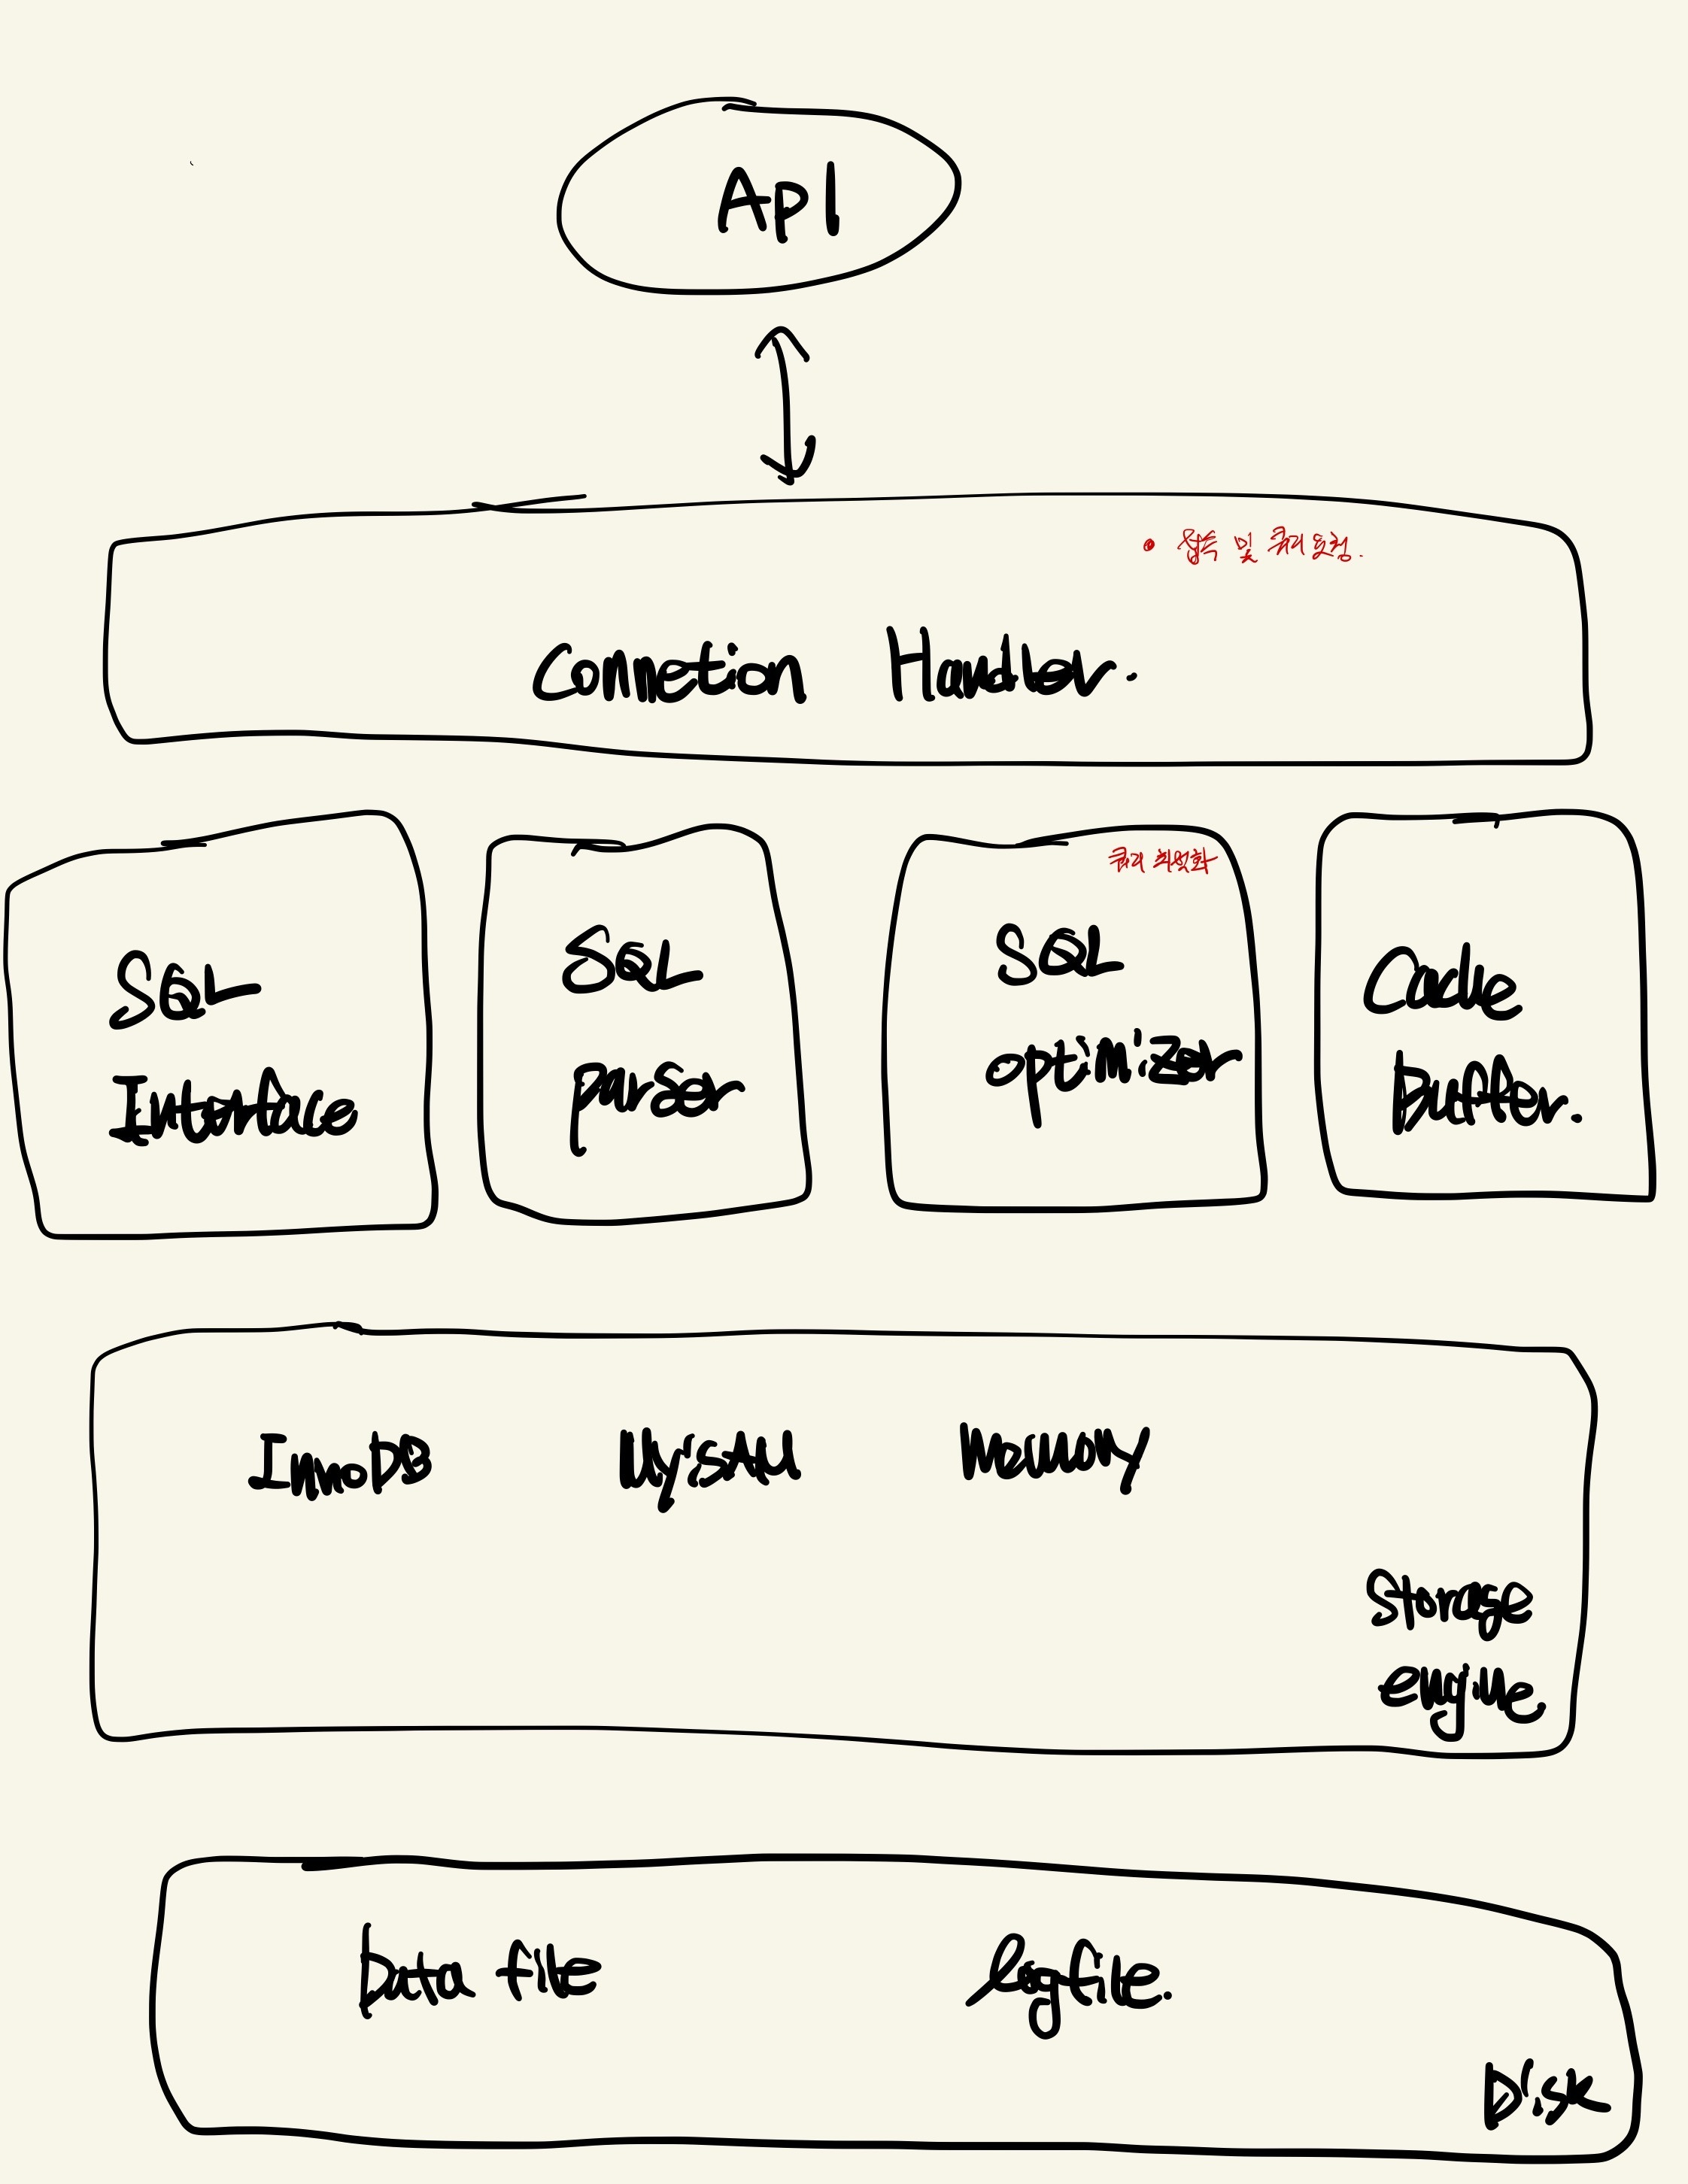 API
• 접속 및 쿼리 요청.
Connetion Handler.
SQL
Interface
SQL
parser
쿼리 최적화
SQL
optimizer
Cache
Buffer.
InnoDB
MyisAM
Memory
storage
engine.
Data file
logfile.
Disk